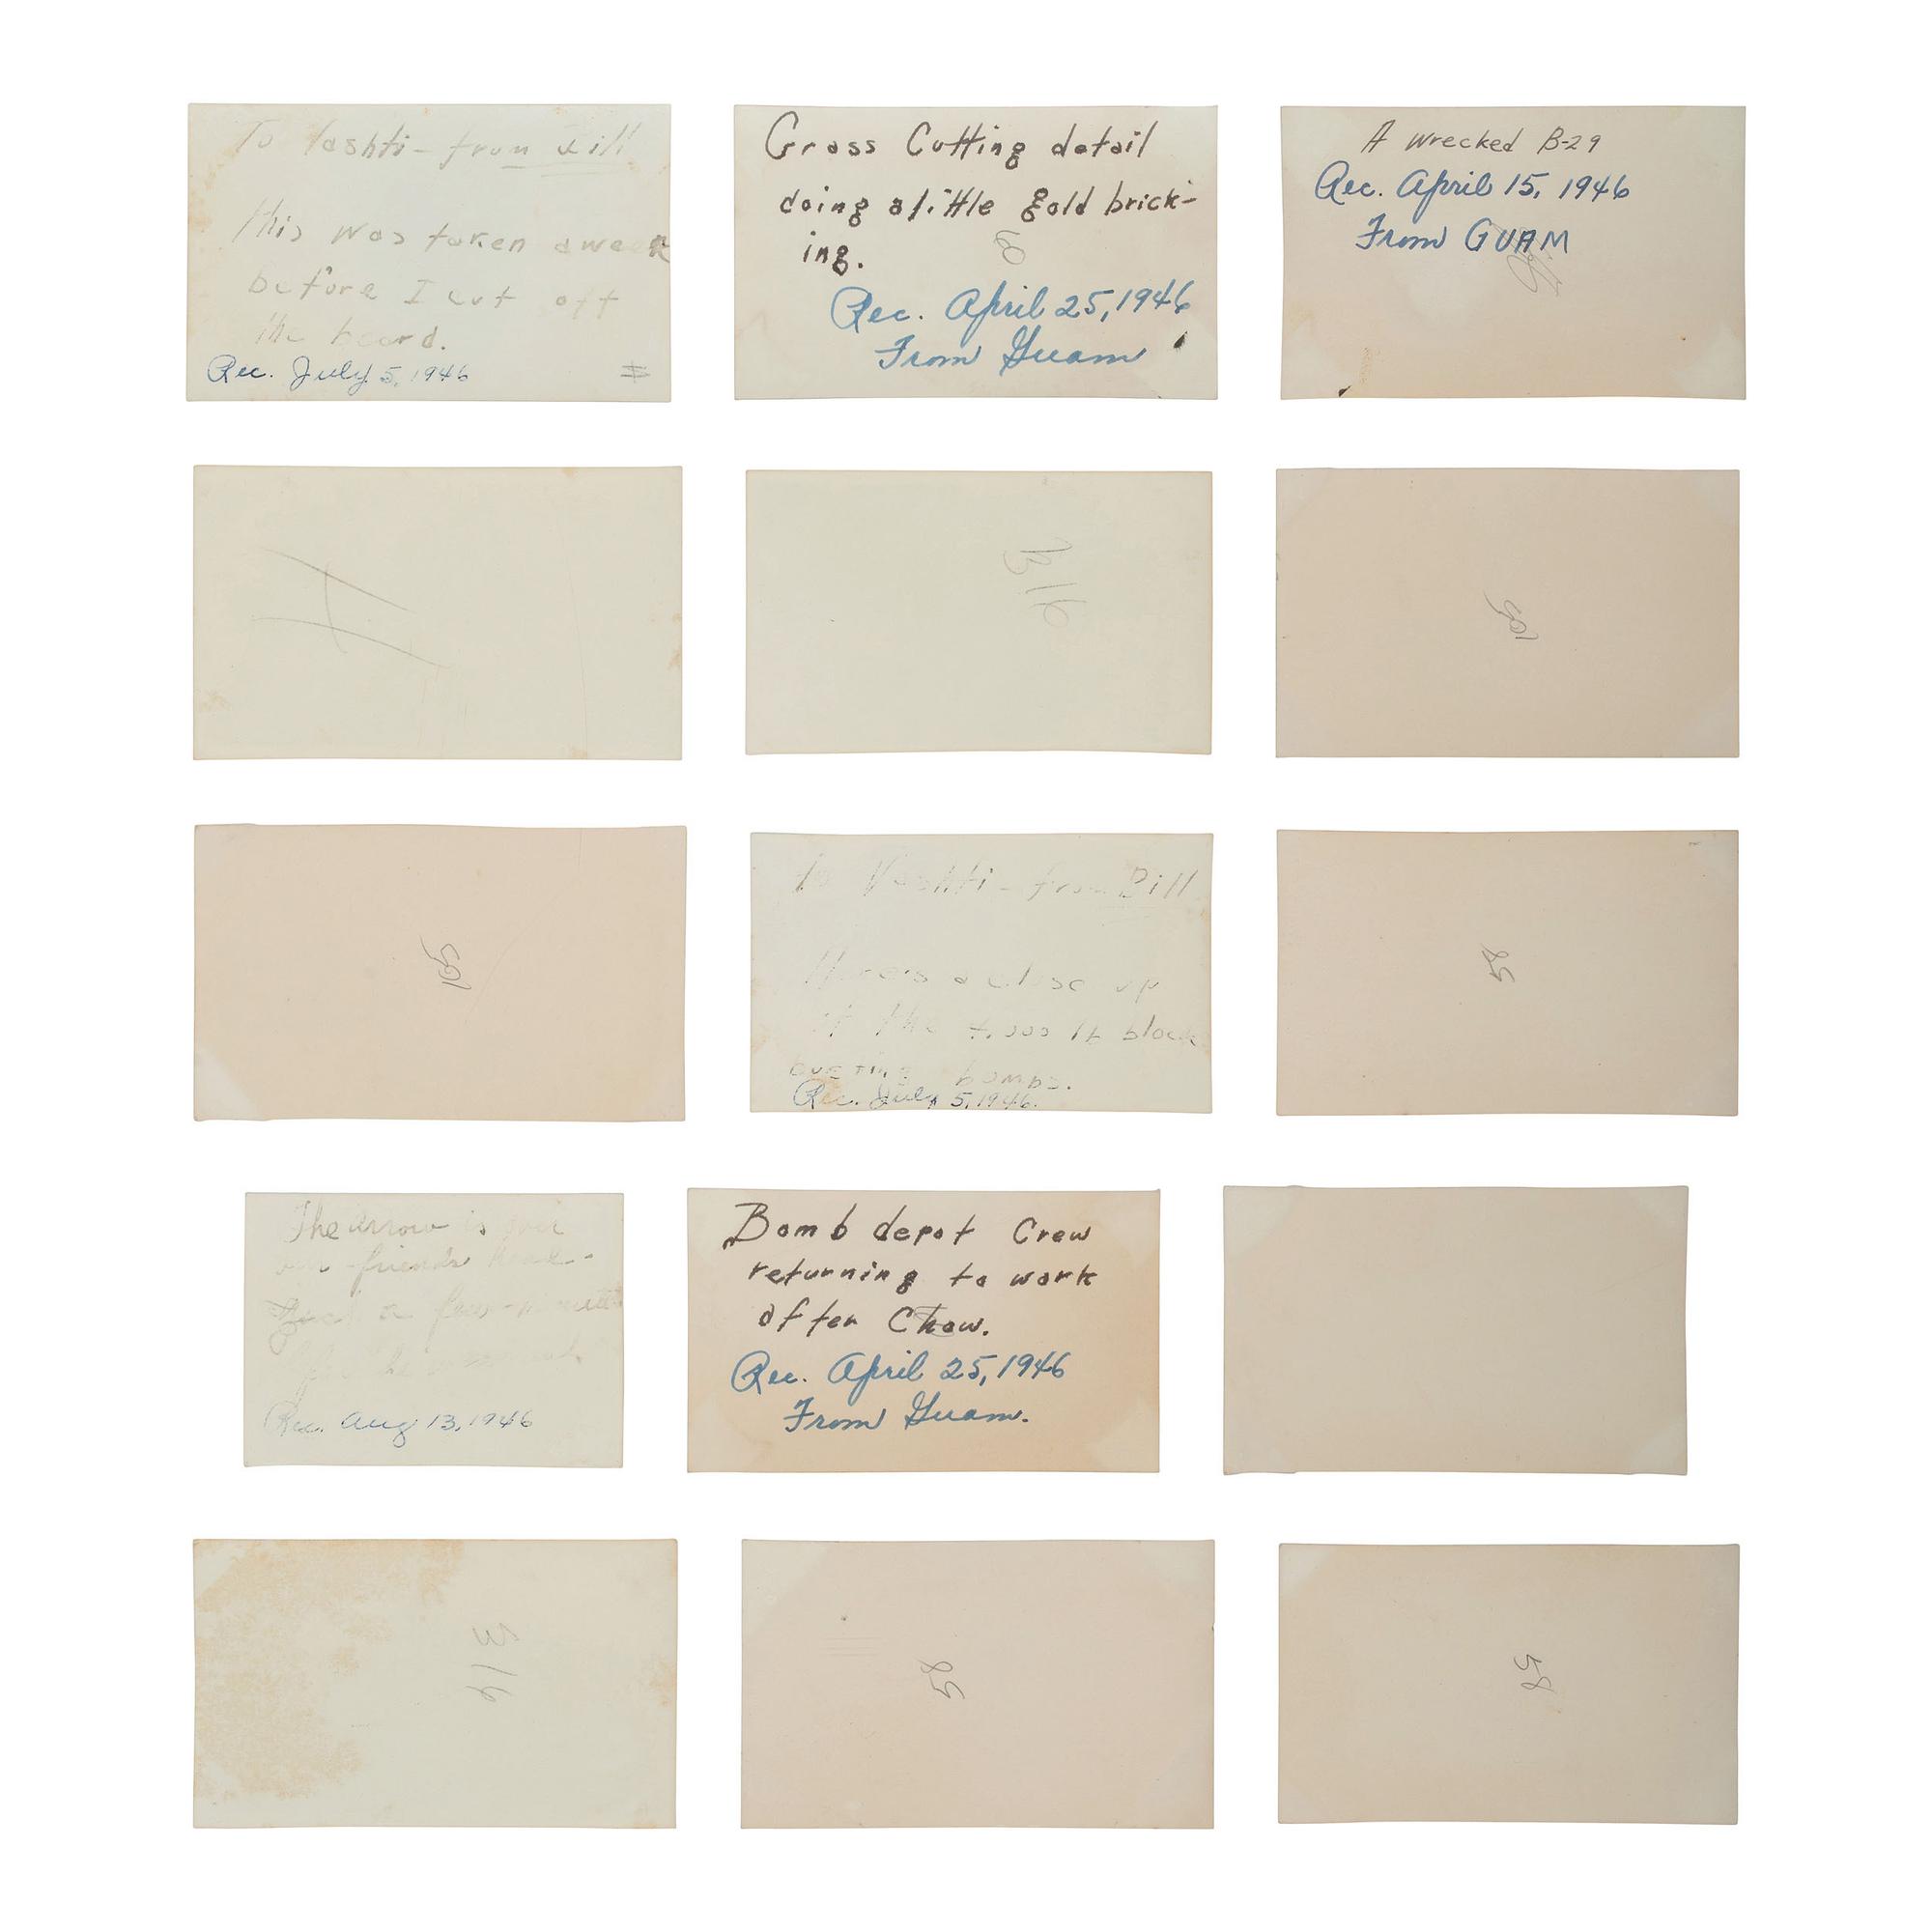 To Vashti - from Bill
This was taken a week
before I cut off
the beard.
Rec. July 5, 1946
Grass Cutting detail
doing a little gold brick-
ing.
60
Rec. April 25, 1946
From Guam
A wrecked B-29
Rec. April 15, 1946
From GUAM
B16
105
105
To Vashti - from Bill
Here's a close up
of the 4,000 lb block
busting bombs.
Rec. July 5, 1946.
58
The arrow is over
our friends head -
Just a few minutes
Rec. Aug 13, 1946
Bomb depot Crew
returning to work
after Chow.
Rec. April 25, 1946
From Guam.
58
58